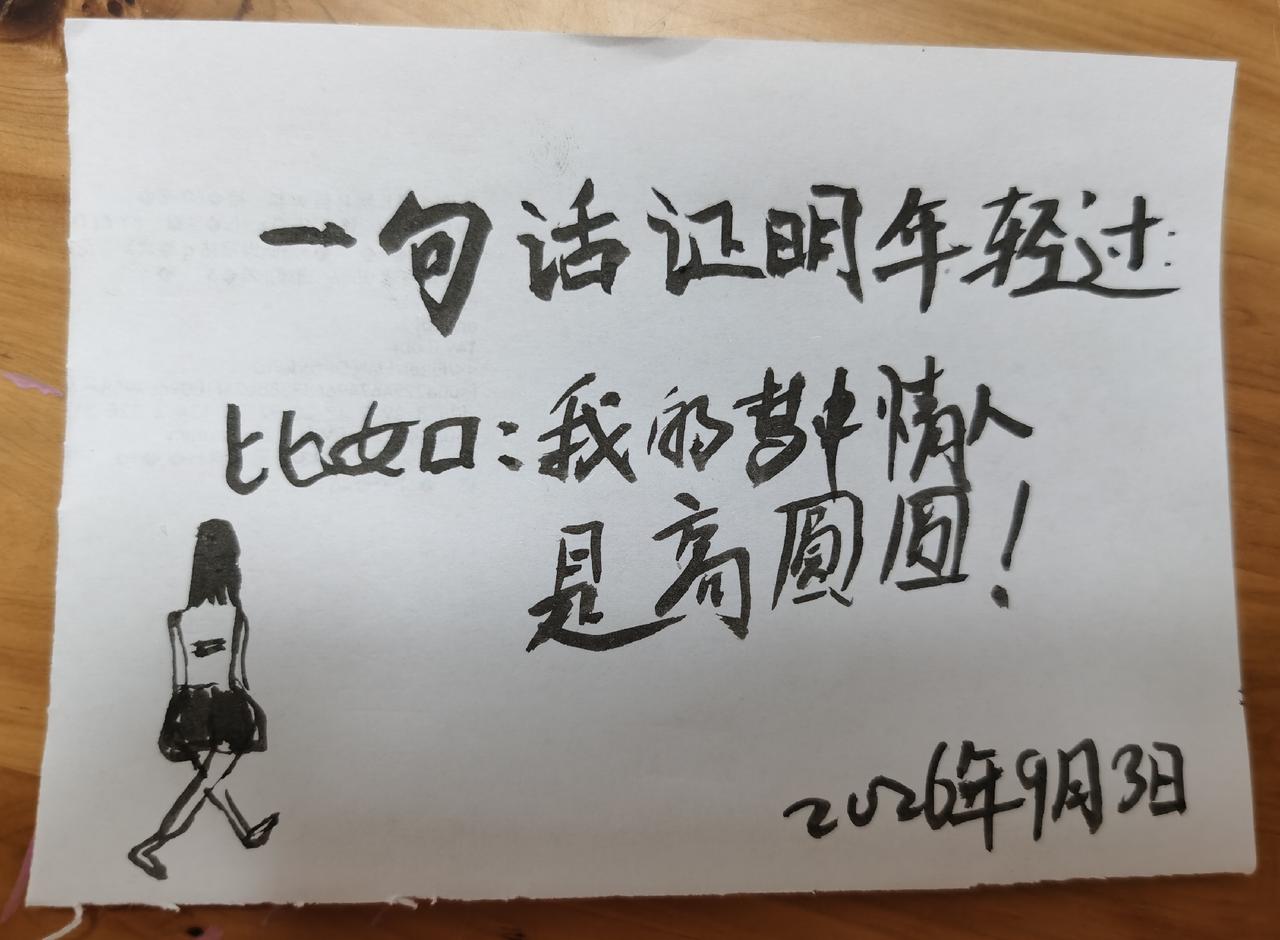 一句话证明年轻过:
比如:我的梦中情人
是高圆圆!
2026年9月3日